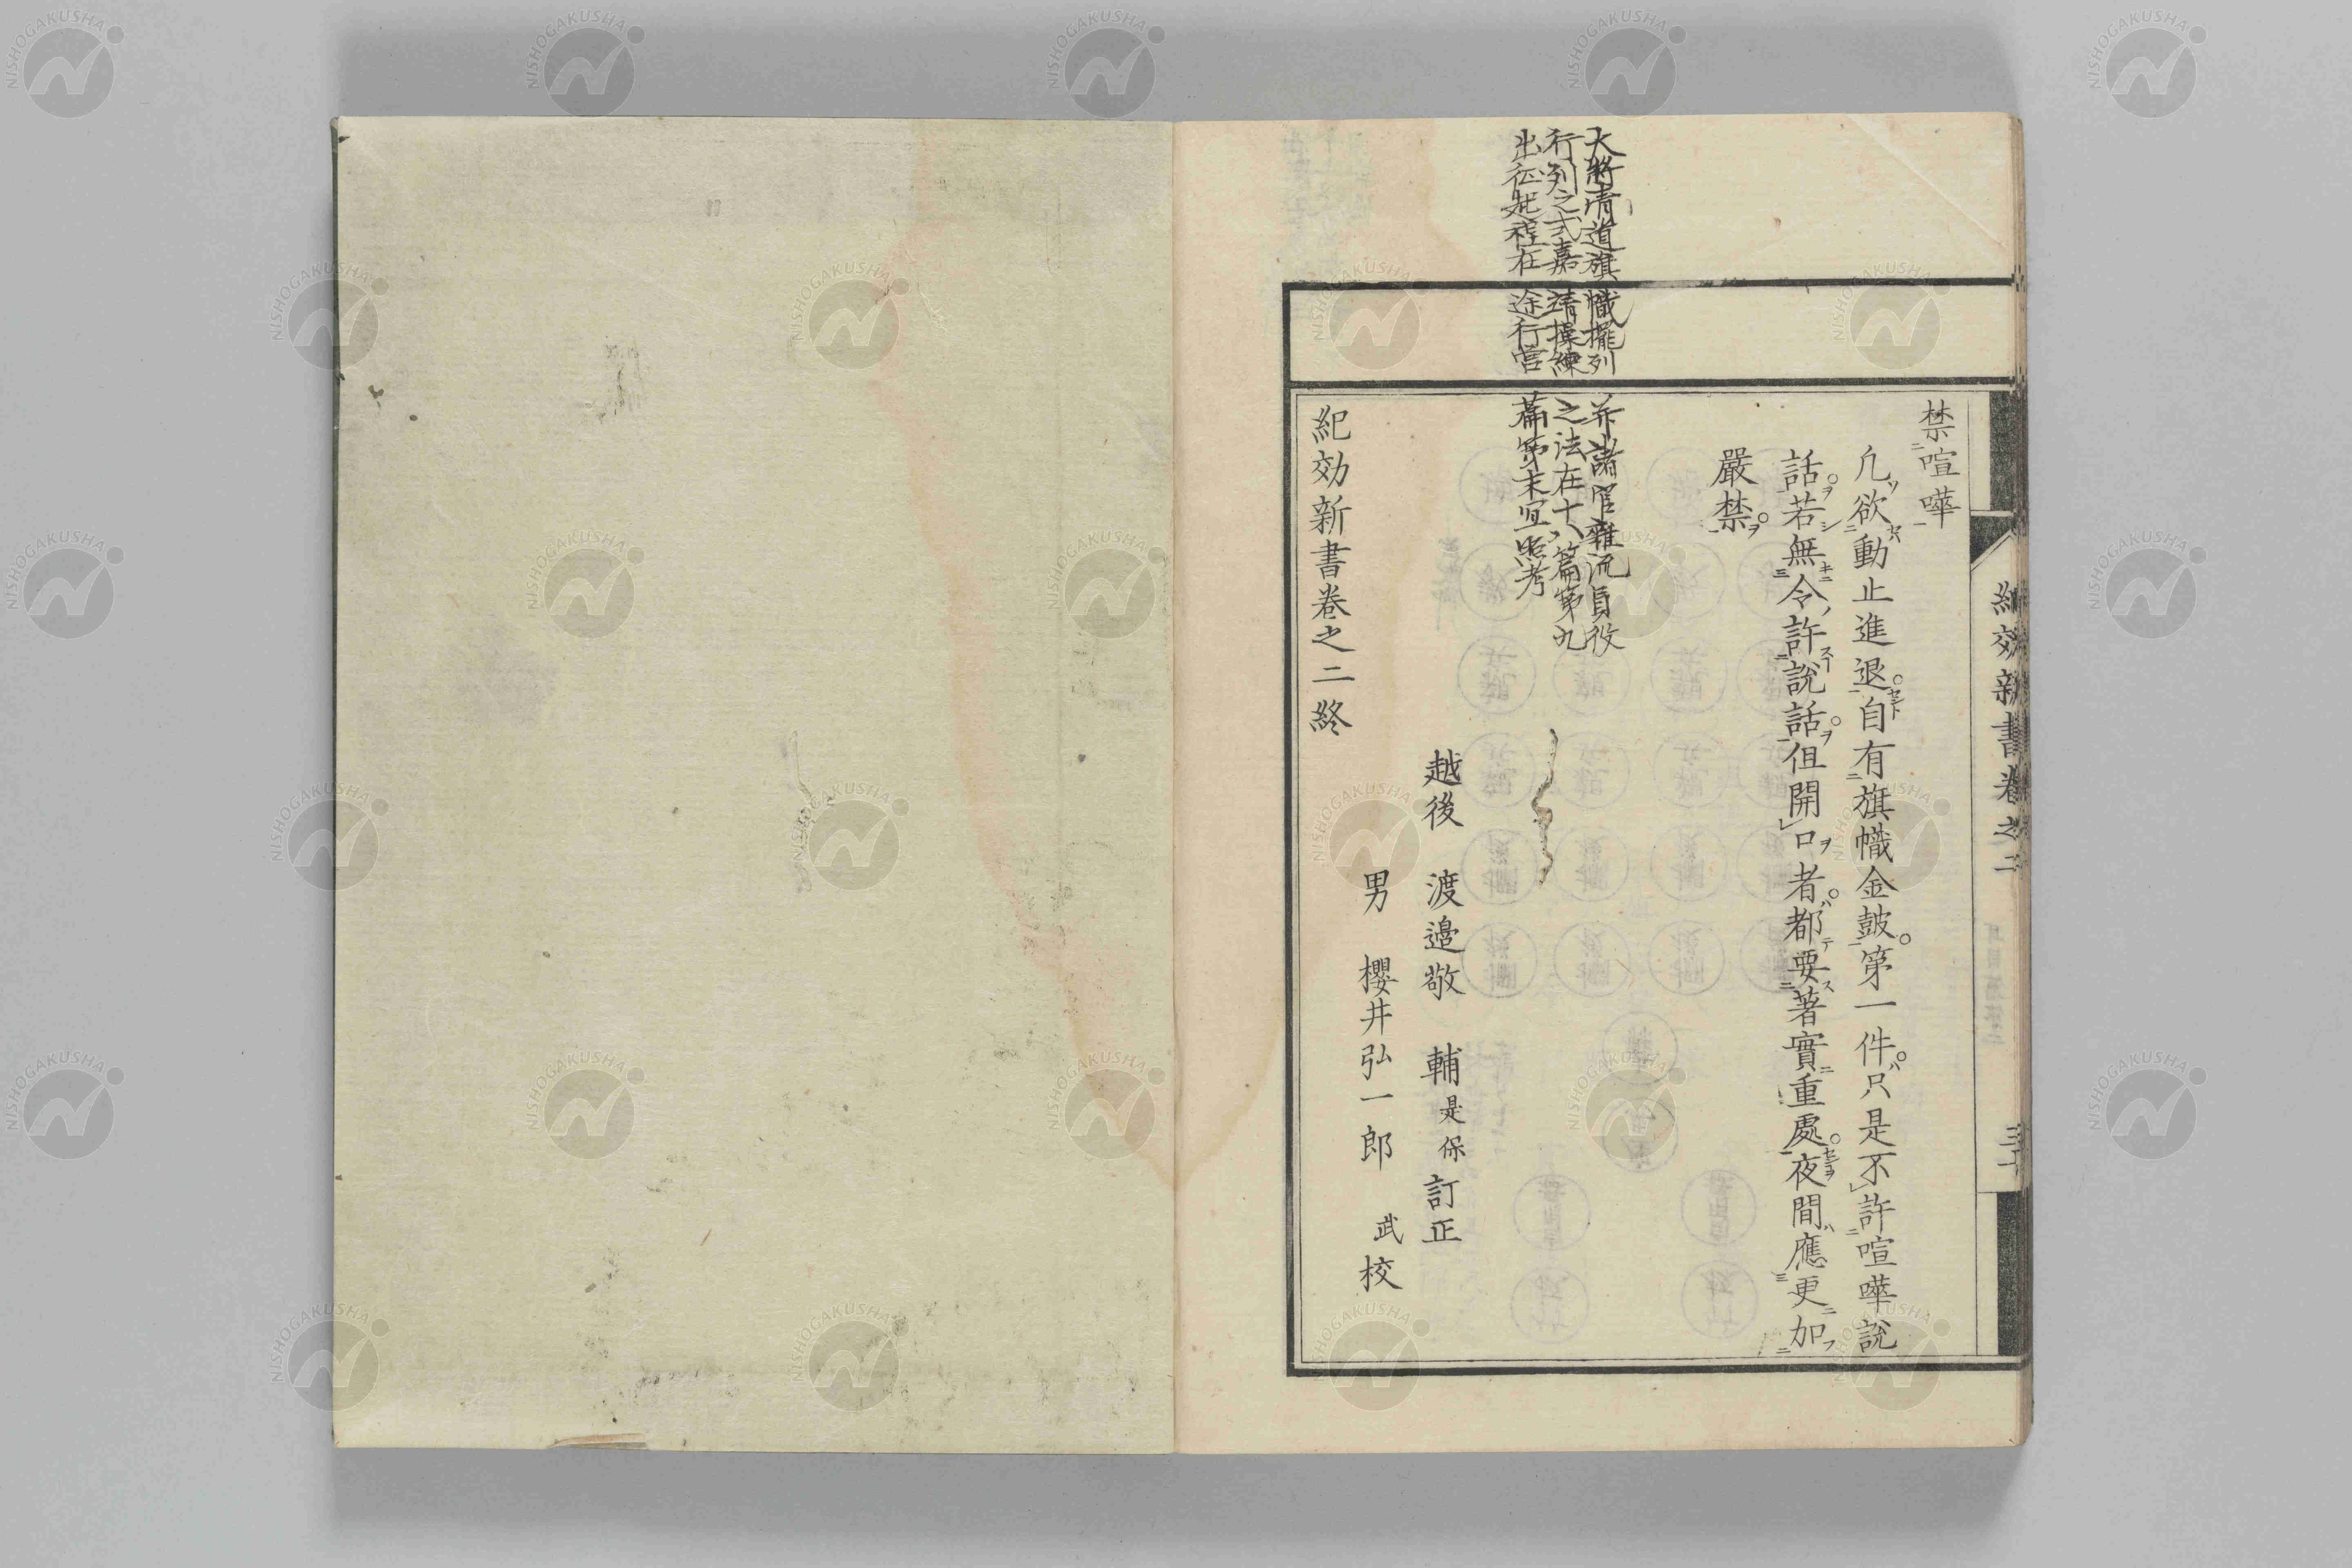 禁喧嘩
凡欲動止進退自有旗幟金鼓第一件只是不許喧嘩說
話若無令許說話但開口者都要著實重處夜間應更加
嚴禁
大將清道旗幟擺列并諸官雜流員役
行列之式嘉靖操練之法在十八篇第九
出征起程在途行营篇第末宜照考
越後 渡邉敬 輔是保訂正
男 櫻井弘一郎 武校
紀効新書卷之二終
紀効新書卷之二
NISHOGAKUSHA